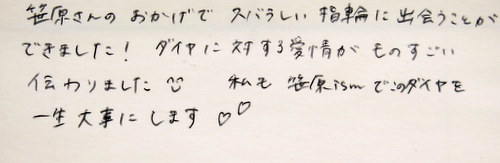 笹原さんのおかげでスバらしい指輪に出会うことが
できました! ダイヤに対する愛情がものすごい
伝わりました☺ 私も笹原ismでこのダイヤを
一生大事にします♡♡